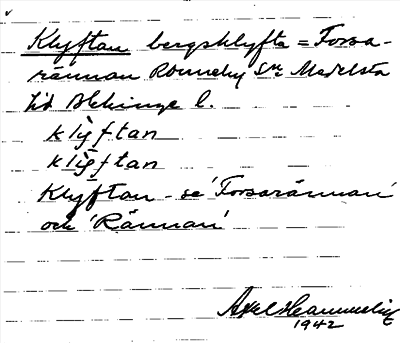 Klyftan bergsklyfta = Forsa-
rännan Ronneby Sn Medelsta
hd Blekinge l.
klỳftan
klỳftan
Klyftan - se 'Forsarännan'
och 'Rännan'
Axel
1942